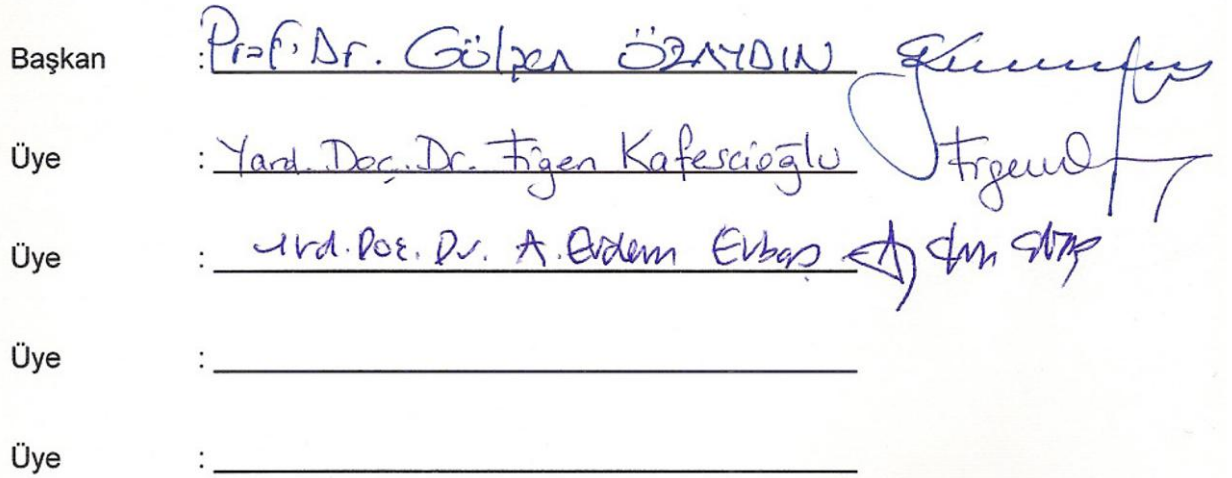 Başkan : Prof. Dr. Gülşen ÖZAYDIN
Üye : Yard. Doç. Dr. Figen Kafescioğlu
Üye : Yrd. Doç. Dr. A. Erdem Erbaş
Üye :
Üye :